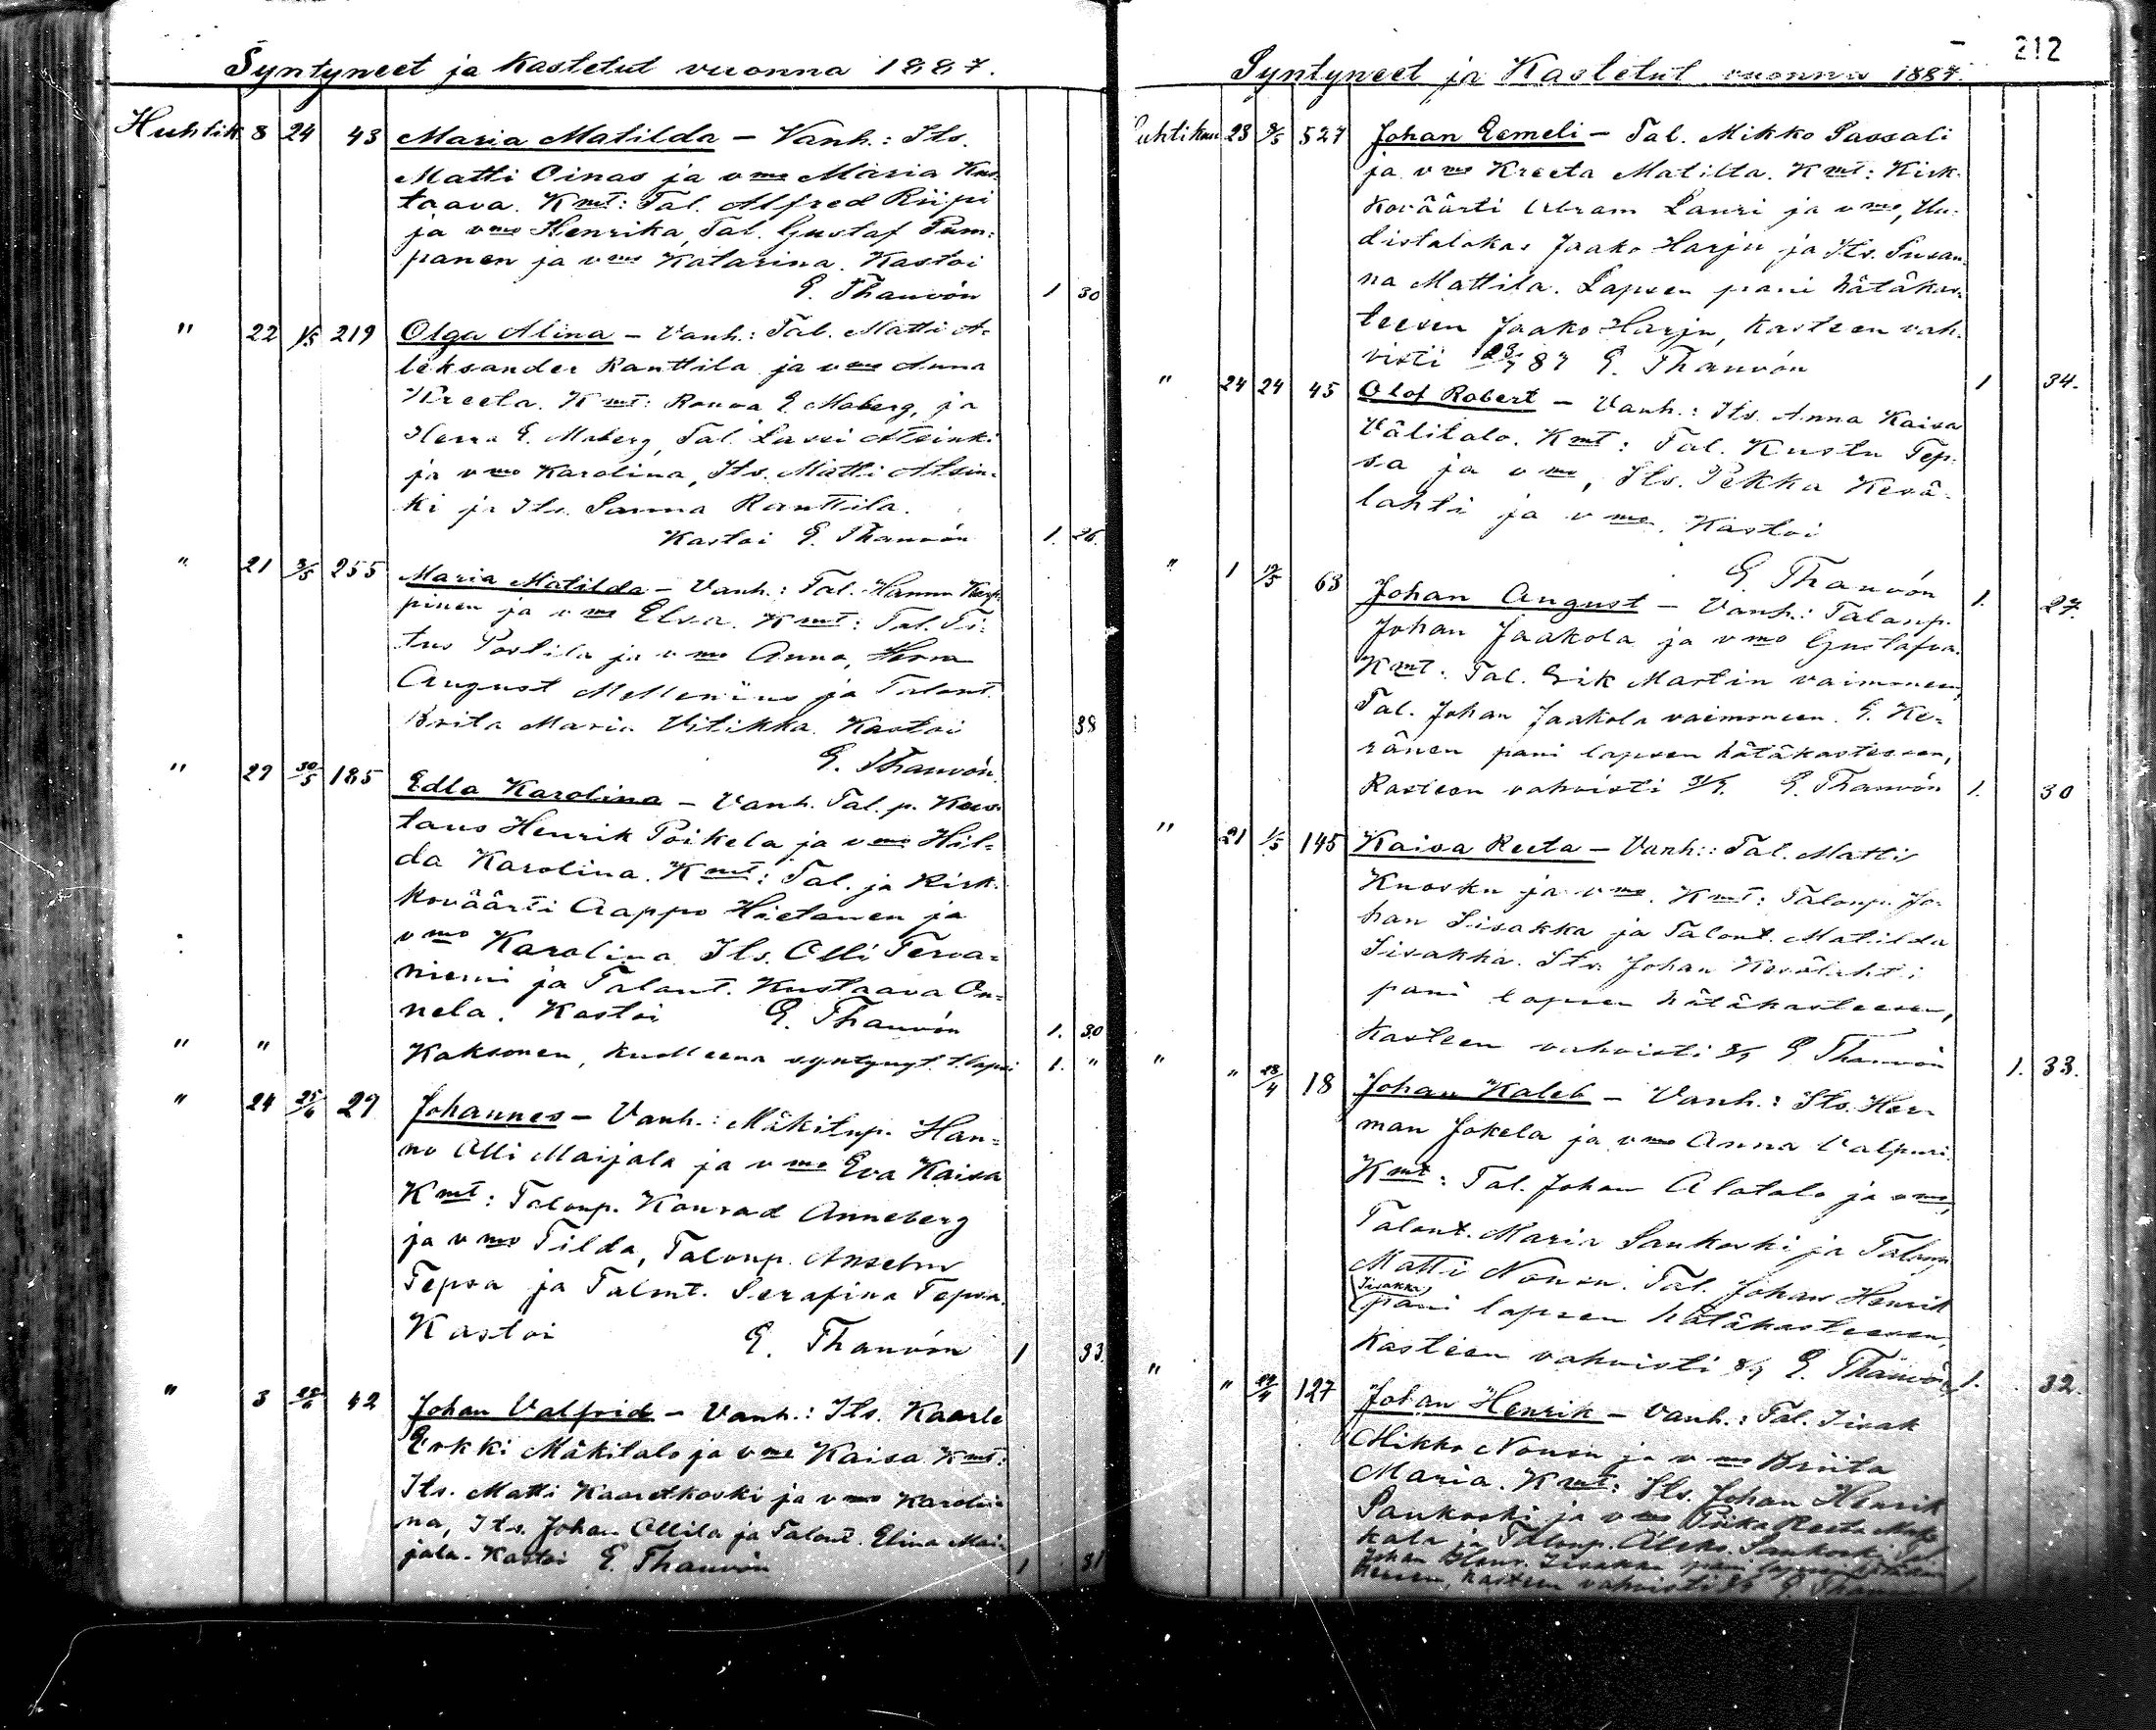 Syntyneet ja Kastetut vuonna 1887.
Huhtik. 8 24 43 Maria Matilda – Vanh.: Its.
Matti Oinas ja vmo Maria Kus-
taava. Kmt: Tal. Alfred Riipi
ja vmo Henrika, Tal. Gustaf Pum-
panen ja vmo Katarina. Kastoi
E. Thauvón 1 30
" 22 1/5 219 Olga Alina – Vanh.: Tal. Matti A-
leksander Ranttila ja vmo Anna
Kreeta. Kmt: Rouva E. Moberg, ja
Herra E. Moberg, Tal. Lassi Alsinki
ja vmo Karolina, Its. Matti Alsin-
ki ja Its. Sanna Ranttila.
Kastoi E. Thauvón 1. 26.
" 21 3/5 255 Maria Matilda – Vanh.: Tal. Hannu Kerp-
pinen ja vmo Elsa. Kmt: Tal. Ti-
tus Postila ja vmo Anna, Herra
August Mellenius ja Talont.
Brita Maria Vitikka. Kastoi 38
E. Thauvón.
" 29 30/5 185 Edla Karolina – Vanh. Tal. p. Kus-
taus Henrik Poikela ja vmo Hil-
da Karolina. Kmt: Tal. ja Kirk-
koväärti Aappo Hietanen ja
vmo Karolina Its. Olli Terva-
niemi ja Talont. Kustaava On-
nela. Kastoi E. Thauvón 1. 30
" " Kaksonen, kuolleena syntynyt t. lapsi 1. "
" 24 25/6 29 Johannes – Vanh.: Mäkitup. Han-
nu Olli Maijala ja vmo Eva Kaisa
Kmt: Taloup. Konrad Anneberg
ja vmo Tilda, Taloup. Anselm
Tepsa ja Talont. Serafina Tepsa.
Kastoi E. Thauvón 1 33.
" 3 42 Johan Valfrid – Vanh.: Its. Kaarle
Erkki Mäkitalo ja vmo Kaisa Kmt:
Its. Matti Kaaretkoski ja vmo Karolii-
na, Its. Johan Ollila ja Talont. Elina Mai-
jala. Kastoi E. Thauvón 1 31
212
Syntyneet ja Kastetut vuonna 1887.
Huhtikuu 23 9/5 527 Johan Eemeli – Tal. Mikko Sassali
ja vmo Kreeta Matilta. Kmt: Kirk-
koväärti Abram Lauri ja vmo, Uu-
distalokas Jaako Harju ja Its. Susan-
na Mattila. Lapsen pani hätäkas-
teesen Jaako Harju, kasteen vah-
visti 87 E. Thauvón 1 34.
" 24 24 45 Olof Robert – Vanh.: Its. Anna Kaisa
Välitalo. Kmt: Tal. Kustu Tep-
sa ja vmo, Its. Pekka Kesä-
lahti ja vmo. Kastoi
E. Thauvón 1. 27.
" 1 19/5 63 Johan August – Vanh.: Taloup.
Johan Jaakola ja vmo Gustafva.
Kmt: Tal. Erik Martin vaimoneen,
Tal. Johan Jaakola vaimoneen. E. Ke-
ränen pani lapsen hätäkasteesen,
Kasteen vahvisti E. Thauvón 1. 30
" 21 1/5 145 Kaisa Reeta – Vanh.: Tal. Matti
Knosku ja vmo. Kmt: Taloup. Jo-
han Iisakka ja Talont. Matilda
Iisakka. Its. Johan Kesälahti
pani lapsen hätäkasteesen,
Kasteen vahvisti E. Thauvón 1. 33.
" " 18 Johan Kaleb – Vanh.: Its. Her-
man Jokela ja vmo Anna Valpuri.
Kmt: Tal. Johan Alatalo ja vmo,
Talont. Maria Saukoski ja Taloup.
Matti Nonen. Tal. Johan Henrik
Iisakka pani lapsen hätäkasteesen,
Kasteen vahvisti E. Thauvón 1. 32.
" " 127 Johan Henrik – Vanh.: Tal. Iisak
Mikko Nonen ja vmo Briita
Maria. Kmt: Its. Johan Henrik
Saukoski ja vmo Priita Reeta
kala ja Taloup. Aleks. Saukoski Tal.
Johan Henr. Iisakka pani lapsen hätäkas-
teesen, kasteen vahvisti E. Thauvón 1